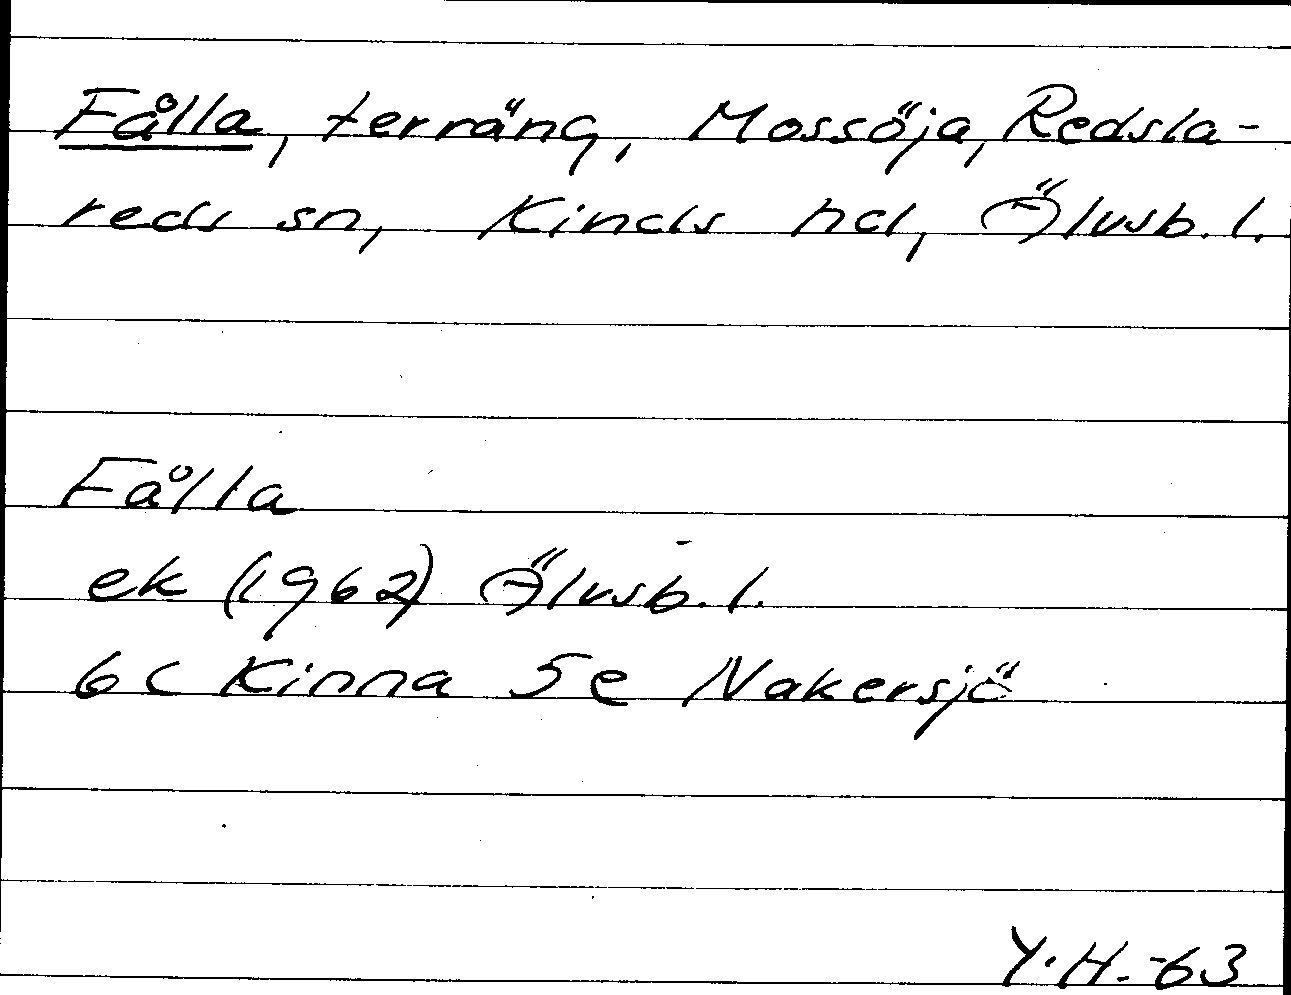 Fålla, terräng, Mossöja, Redsla-
reds sn, Kinds hd, Älvsb. l.
Fålla
ek (1962) Älvsb. l.
6c Kinna 5e Nakersjö
Y.H.-63